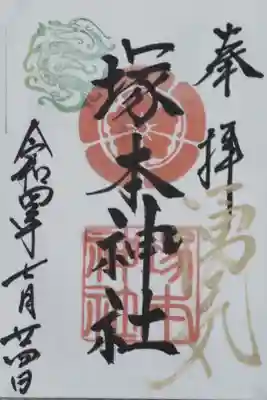 奉拝
勇気
塚本神社
塚本神社
令和四年七月廿四日